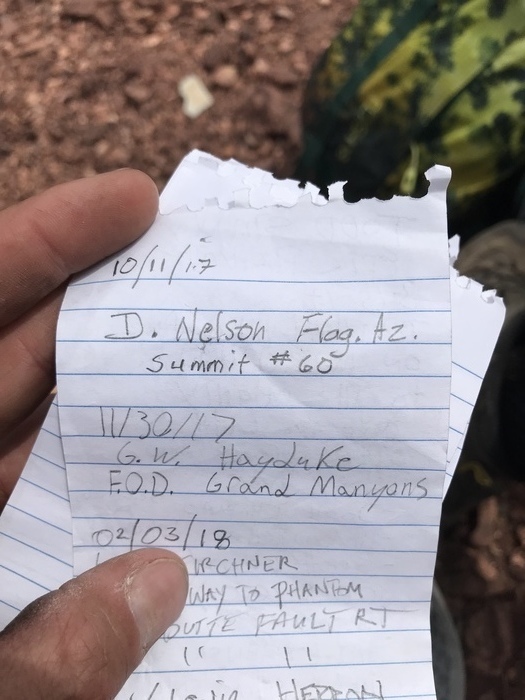 10/11/17
D. Nelson Flag. Az.
Summit #60
11/30/17
G.W. Hayduke
F.O.D. Grand Manyons
02/03/18
IRCHNER
WAY TO PHANTOM
FAULT RT
" "
HERRON